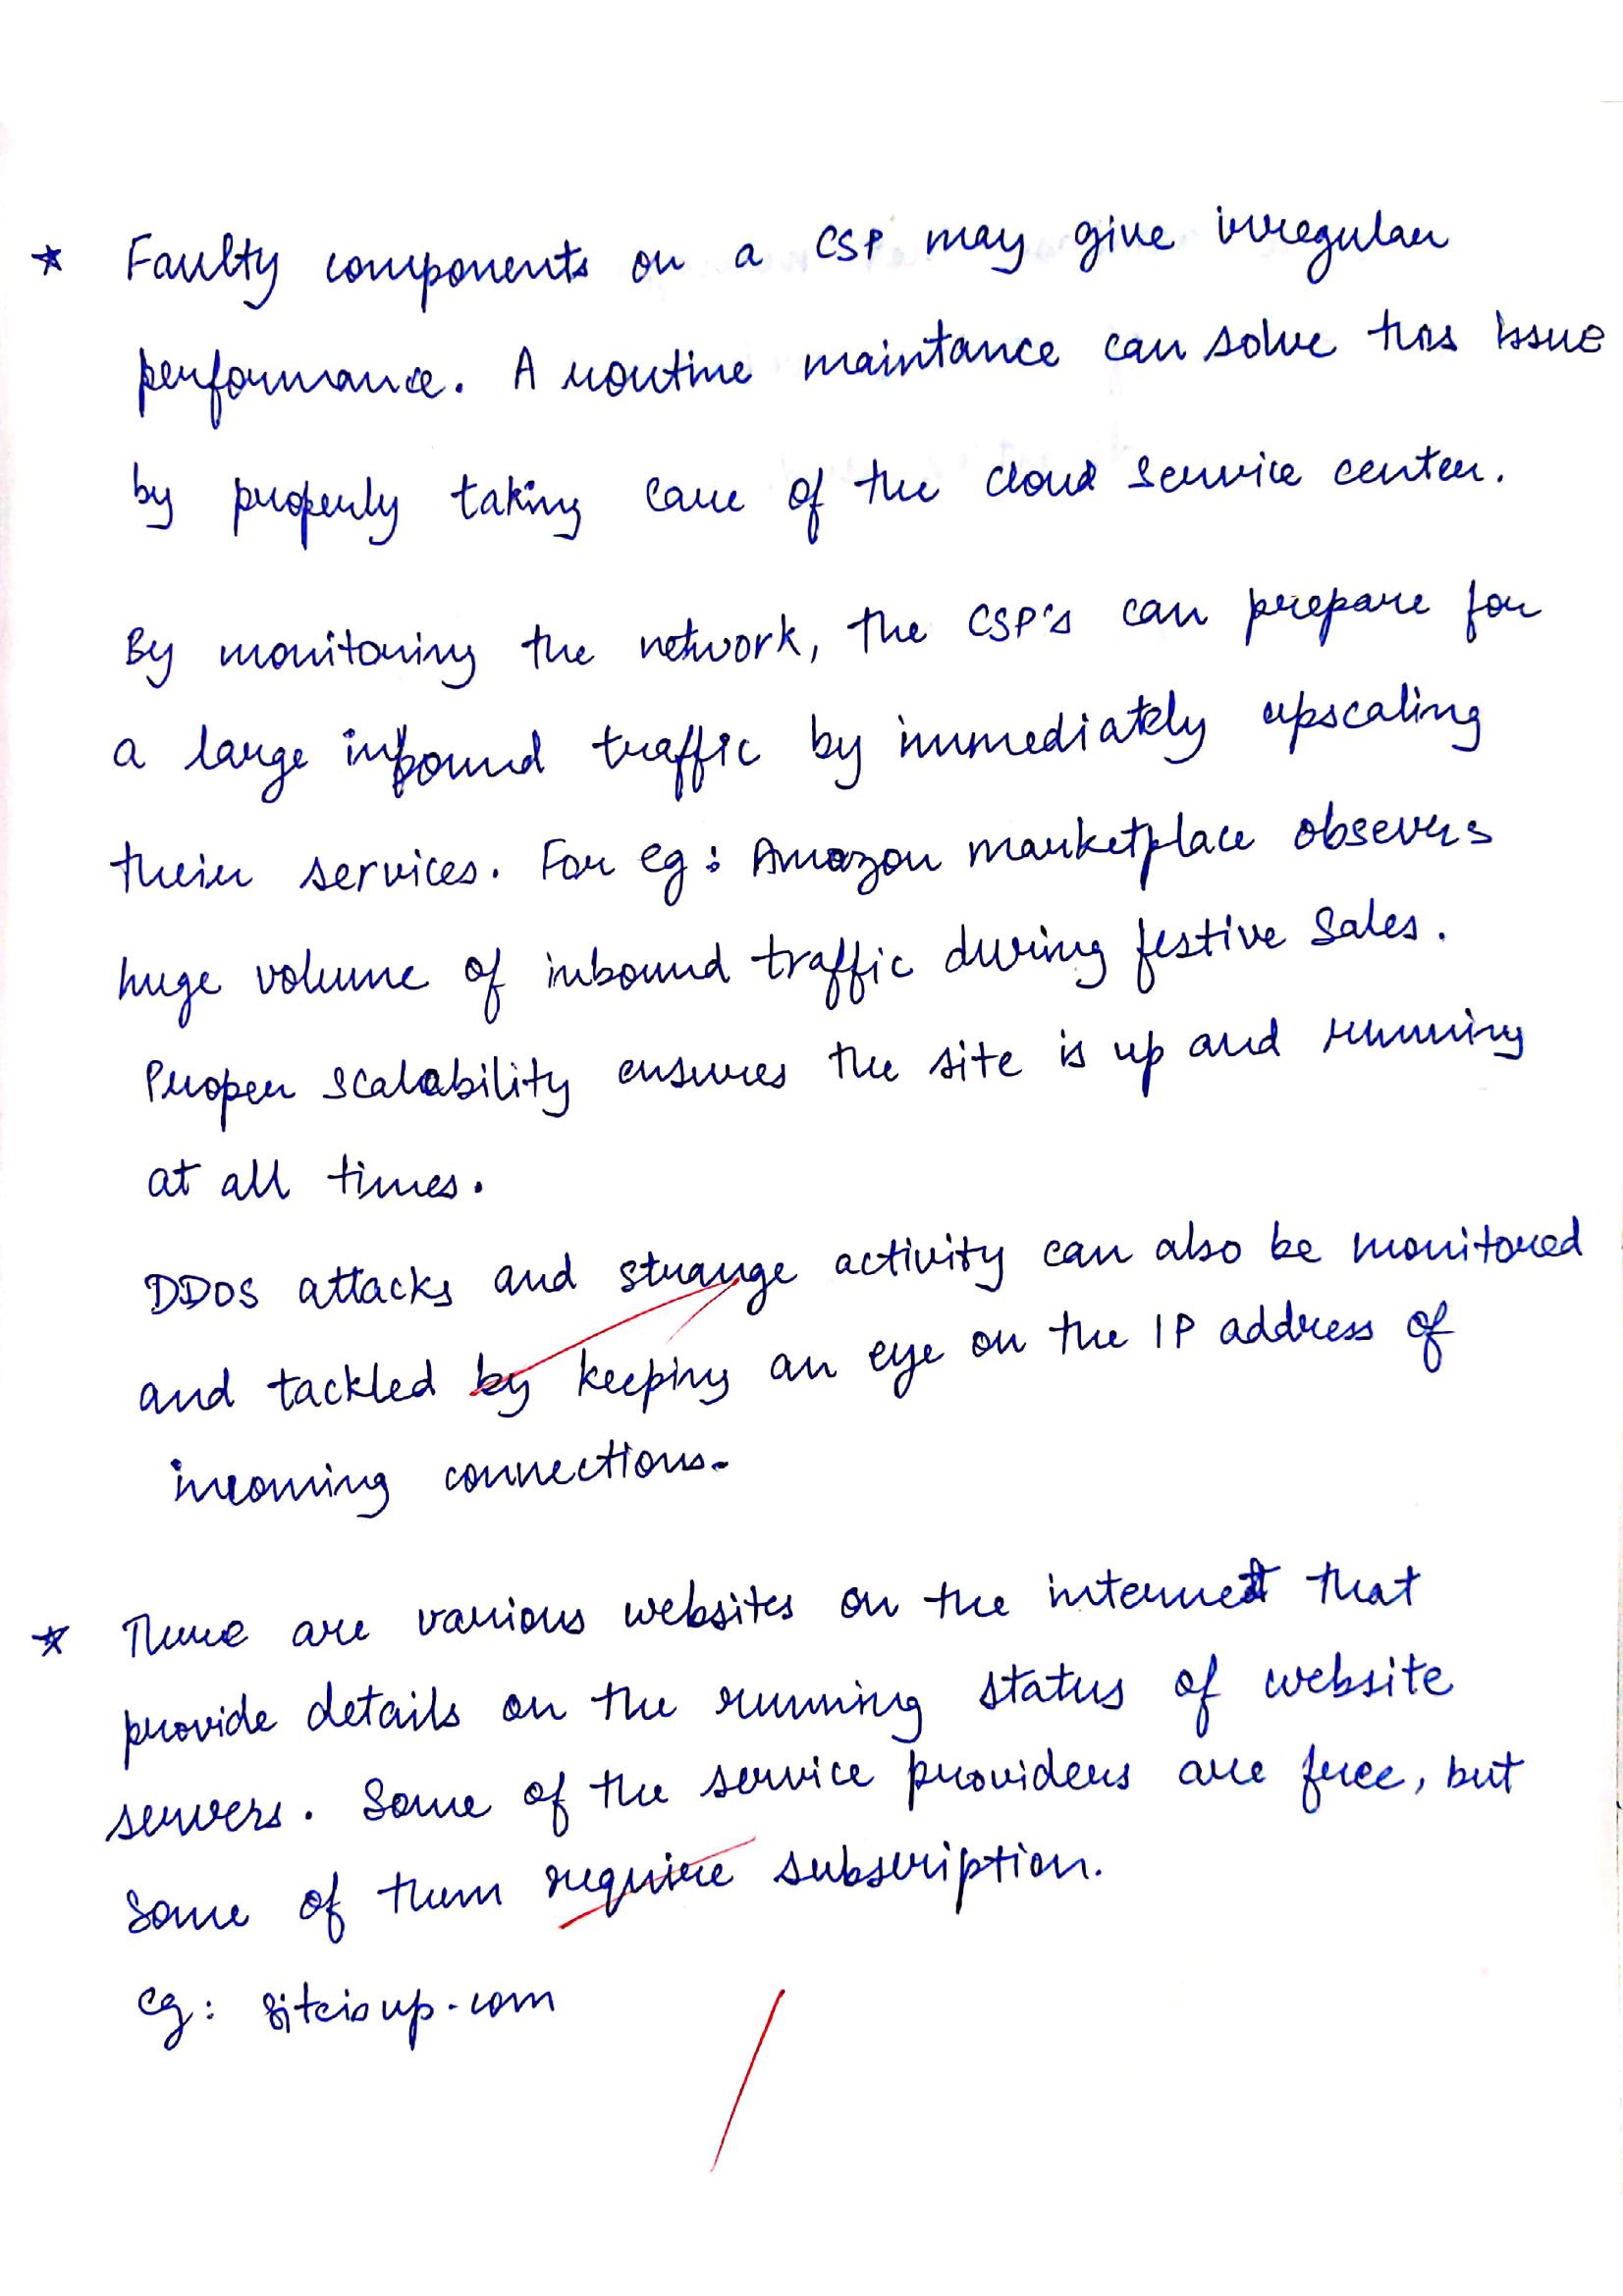 * Faulty components on a CSP may give irregular
performance. A routine maintance can solve this issue
by properly taking care of the cloud service center.
By monitoring the network, the CSP's can prepare for
a large inbound traffic by immediately upscaling
their services. For eg: Amazon marketplace observes
huge volume of inbound traffic during festive sales.
Proper scalability ensures the site is up and running
at all times.
DDOS attacks and strange activity can also be monitored
and tackled by keeping an eye on the IP address of
incoming connections.
* There are various websites on the internet that
provide details on the running status of website
servers. Some of the service providers are free, but
some of them require subscription.
eg: siteisup.com